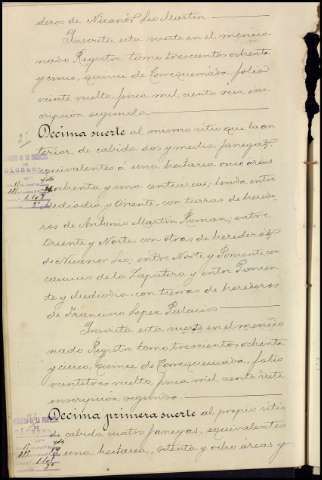 deros de Nicanor Leo Martin
Inscrita esta suerte en el mencio
nado Registro tomo trescientos ochenta
y cinco, quince de Torrequemada, folio
veinte vuelto, finca mil ciento seis ins
cripcion segunda
Decima suerte al mismo sitio que la an
terior de cabida dos y media fanegas
equivalentes á una hectarea once áreas
ochenta y una centiareas; linda entre
Mediodia y Oriente, con tierras de herede
ros de Antonio Martin Roman; entre
Oriente y Norte con otras de herederos
de Nicanor Leo; entre Norte y Poniente con
camino de la Zapatera y entre Ponien
te y Mediodia con tierras de herederos
de Francisco Lopez Palacios
Inscrita esta suerte en el mencio
nado Registro tomo trescientos ochenta
y cinco, quince de Torrequemada, folio
veintitres vuelto, finca mil ciento siete
inscripcion segunda
Decima primera suerte al propio sitio
de cabida cuatro fanegas, equivalentes
á una hectarea, setenta y ocho áreas y